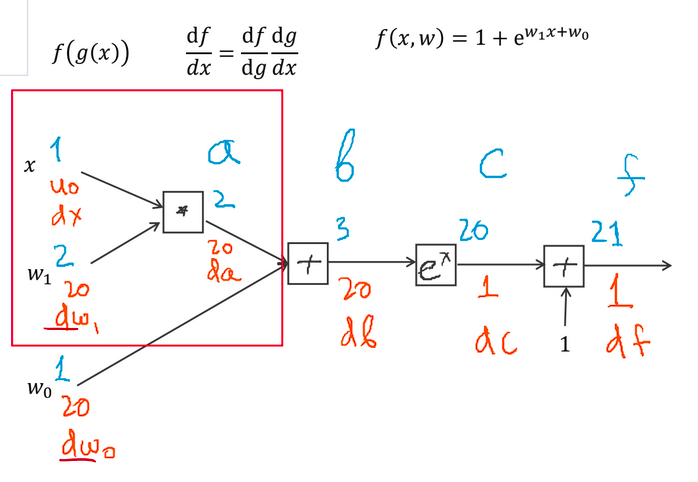 f(g(x))
df/dx = df/dg dg/dx
f(x, w) = 1 + e^{w₁x+w₀}
x 1
40
dx
w₁ 2
20
dw₁
w₀ 1
20
dw₀
*
a
2
20
da
+
b
3
20
db
eˣ
c
20
1
dc
+
1
f
21
1
df